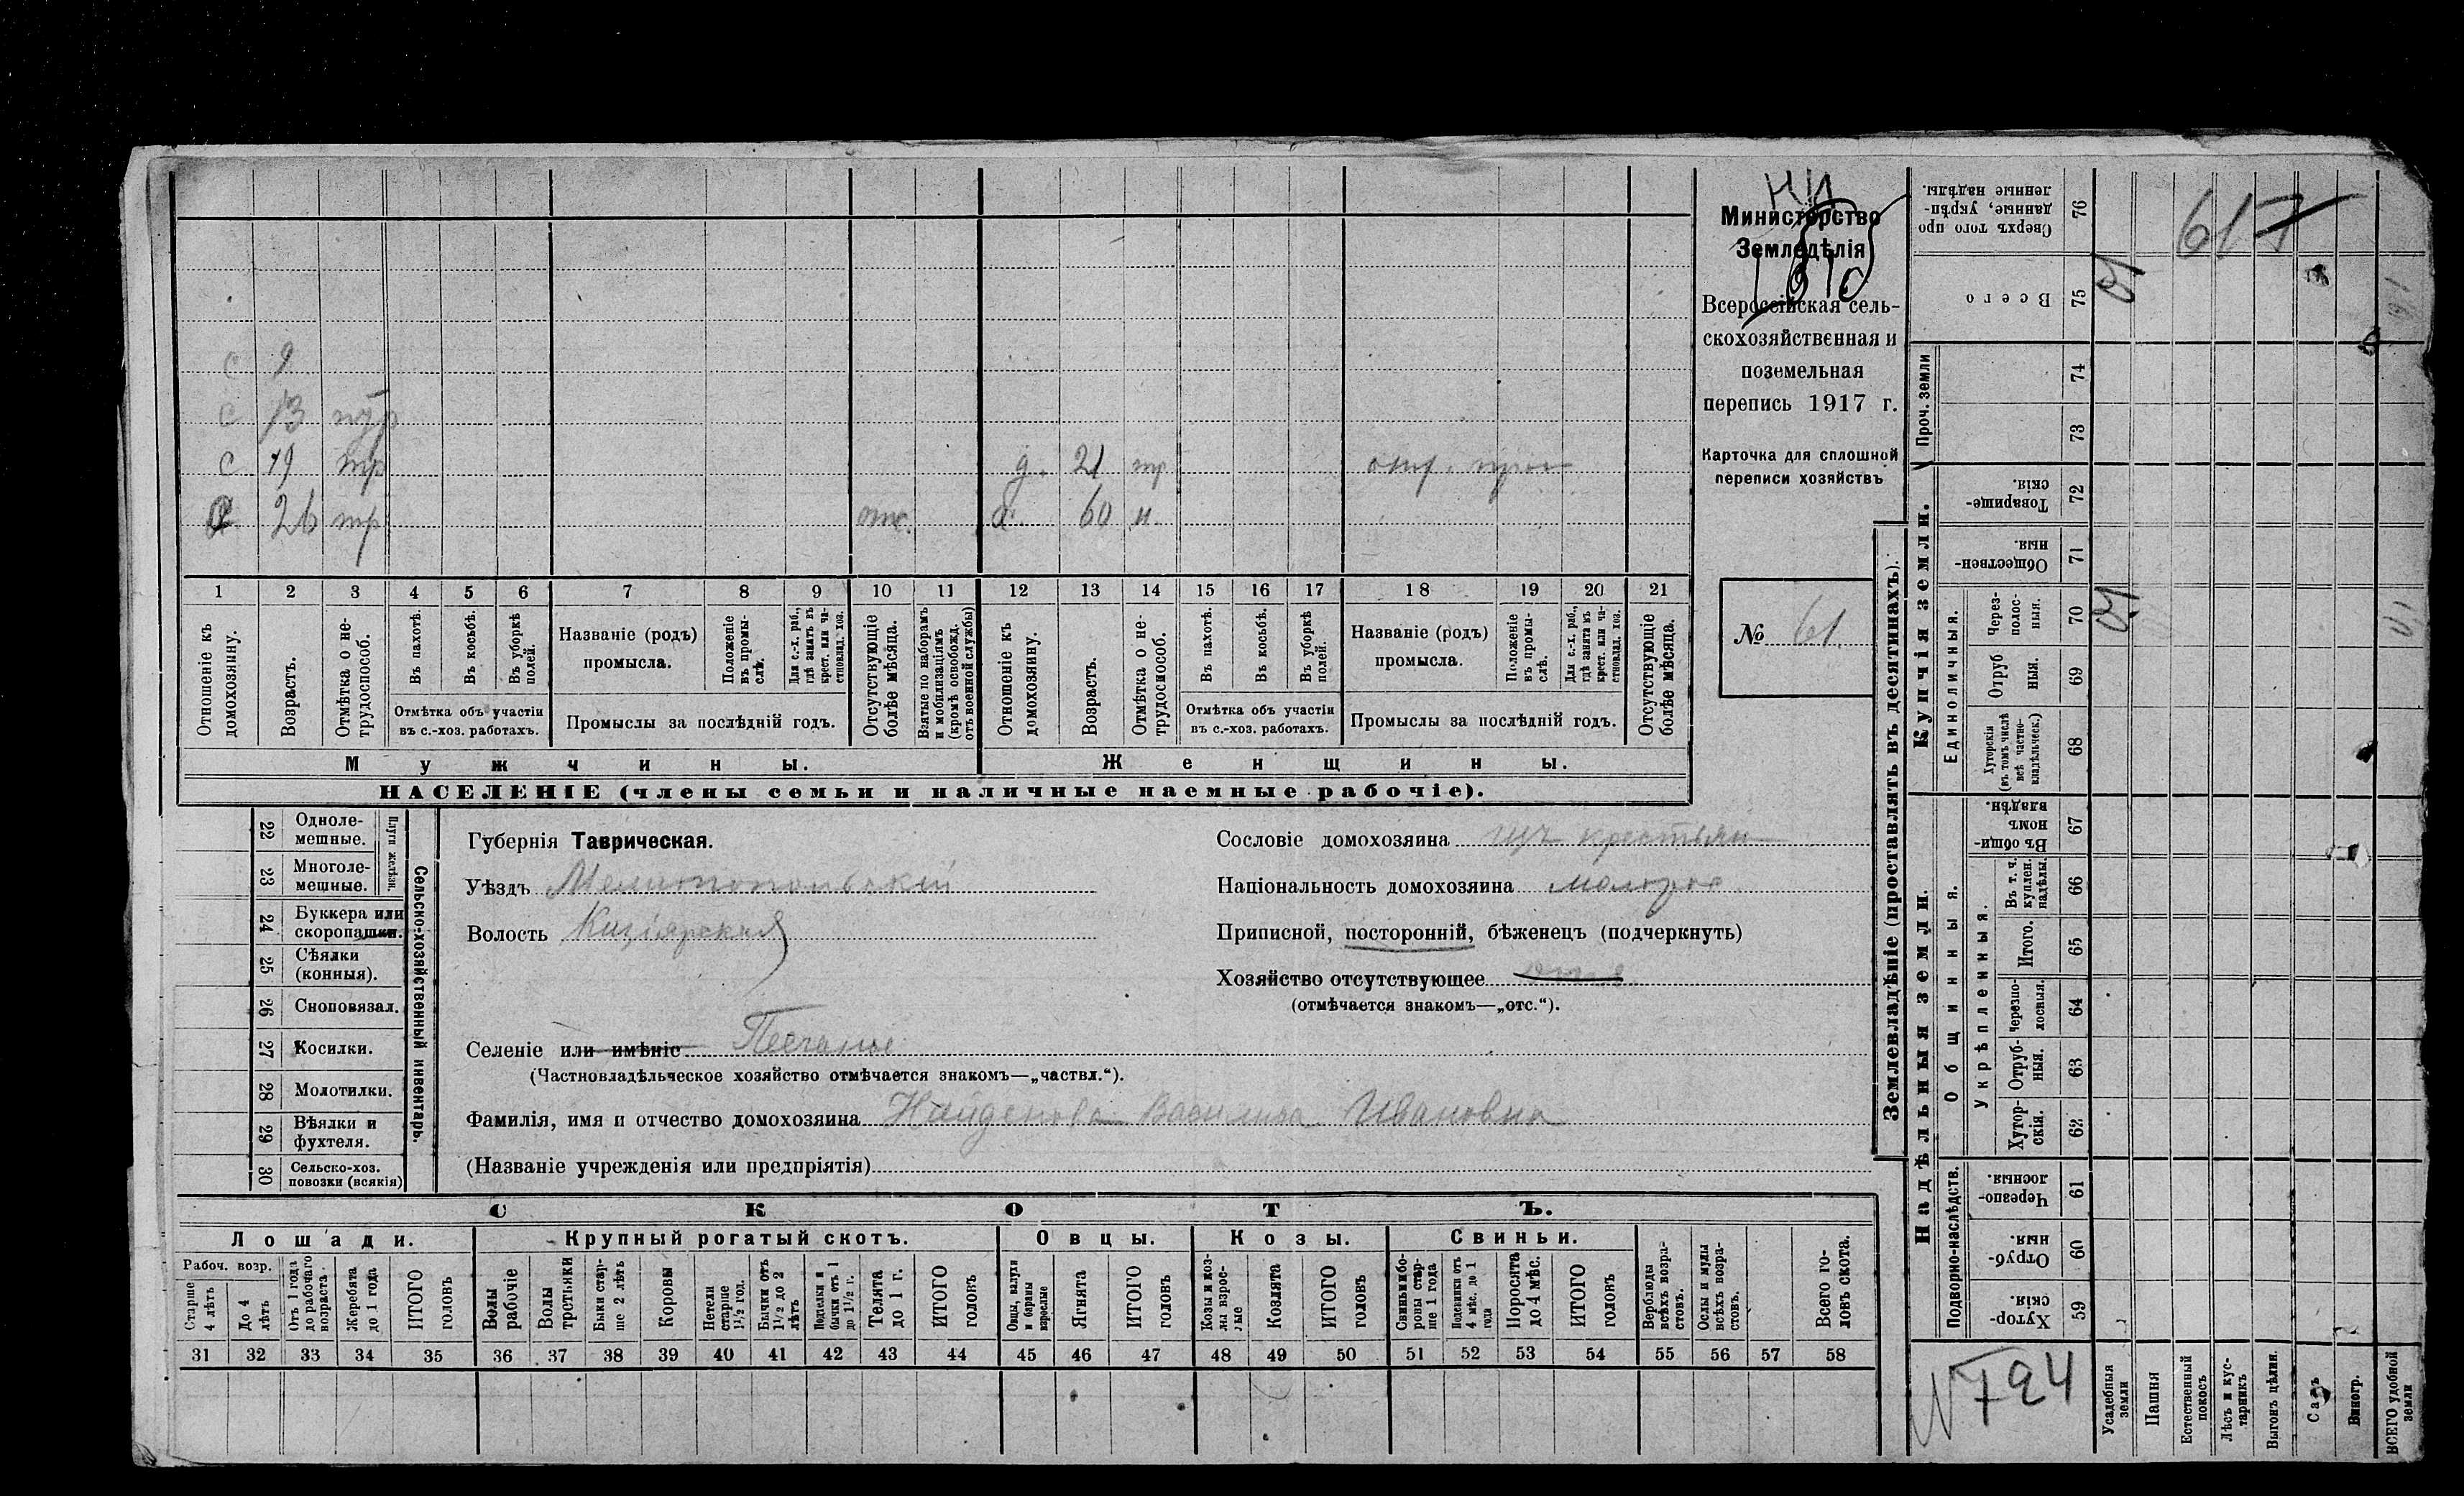 Министерство
Земледѣлія
Всероссійская сель-
скохозяйственная и
поземельная
перепись 1917 г.
Карточка для сплошной
переписи хозяйствъ
№ 61
с 9
с 13
с 19 тр д. 21 тр
26 тр отс. 60 н.
1 2 3 4 5 6 7 8 9 10 11 12 13 14 15 16 17 18 19 20 21
Отношеніе къ домохозяину.
Возрастъ.
Отмѣтка о не-трудоспособ.
Въ пахотѣ.
Въ косьбѣ.
Въ уборкѣ полей.
Отмѣтка объ участіи
въ с.-хоз. работахъ.
Названіе (родъ)
промысла.
Положеніе въ промы-слѣ.
Для с.-х. раб., гдѣ занятъ въ крест. или ча-стновлад. хоз.
Промыслы за послѣдній годъ.
Отсутствующіе болѣе мѣсяца.
Взятые по наборамъ и мобилизаціямъ (кромѣ освобожд. отъ военной службы)
Отношеніе къ домохозяину.
Возрастъ.
Отмѣтка о не-трудоспособ.
Въ пахотѣ.
Въ косьбѣ.
Въ уборкѣ полей.
Отмѣтка объ участіи
въ с.-хоз. работахъ.
Названіе (родъ)
промысла.
Положеніе въ промы-слѣ.
Для с.-х. раб., гдѣ занята въ крест. или ча-стновлад. хоз.
Промыслы за послѣдній годъ.
Отсутствующіе болѣе мѣсяца.
Мужчины. Женщины.
НАСЕЛЕНІЕ (члены семьи и наличные наемные рабочіе).
22 Одноле-мешные.
23 Многоле-мешные.
Плуги желѣзн.
24 Буккера или скоропашки.
25 Сѣялки (конныя).
26 Сноповязал.
27 Косилки.
28 Молотилки.
29 Вѣялки и фухтеля.
30 Сельско-хоз. повозки (всякія)
Сельско-хозяйственный инвентарь.
Губернія Таврическая.
Уѣздъ Мелитопольскій
Волость Кизіярская
Селеніе или имѣніе Песчаное
(Частновладѣльческое хозяйство отмѣчается знакомъ—„частвл.“).
Фамилія, имя и отчество домохозяина Найденова Василиса Ивановна
(Названіе учрежденія или предпріятія)
Сословіе домохозяина крестьян
Національность домохозяина малорос
Приписной, посторонній, бѣженецъ (подчеркнуть)
Хозяйство отсутствующее
(отмѣчается знакомъ—„отс.“).
СКОТЪ.
Лошади. Крупный рогатый скотъ. Овцы. Козы. Свиньи.
Рабоч. возр.
Старше 4 лѣтъ
До 4 лѣтъ
Отъ 1 года до рабочаго возраста
Жеребята до 1 года
ИТОГО головъ
Волы рабочіе
Волы
Быки стар-ше 2 лѣтъ
Коровы
Нетели старше 1½ год.
Бычки отъ 1½ до 2 лѣтъ
Подтелки и бычки отъ 1 до 1½ г.
Телята до 1 г.
ИТОГО головъ
Овцы, валухи и бараны взрослые
Ягнята
ИТОГО головъ
Козы и коз-лы взрос-лые
Козлята
ИТОГО головъ
Свиньи и бо-ровы стар-ше 1 года
Подсвинки отъ 4 мѣс. до 1 года
Поросята до 4 мѣс.
ИТОГО головъ
Верблюды всѣхъ возра-стовъ.
Ослы и мулы всѣхъ возра-стовъ.
Всего го-ловъ скота.
31 32 33 34 35 36 37 38 39 40 41 42 43 44 45 46 47 48 49 50 51 52 53 54 55 56 57 58
Землевладѣніе (проставлять въ десятинахъ).
Купчія земли.
Надѣльныя земли.
Сверхъ того про данные, укрѣп-ленные надѣлы. 76
617
Всего 75
Проч. земли 74
73
Товарище-скія. 72
Обществен-ныя. 71
Единоличныя.
Через-полос-ныя. 70
Отруб ныя. 69
Хуторскія (въ томъ числѣ всѣ частно-владѣльческ.) 68
Общинныя.
Въ общи-номъ владѣн. 67
Укрѣпленныя.
Въ т. ч. куплен. надѣлы 66
Итого. 65
Черезпо-лосныя. 64
Отруб-ныя. 63
Хутор-скія. 62
Подворно-наслѣдств.
Черезпо-лосныя. 61
Отруб-ныя. 60
Хутор-скія. 59
N 794
Усадебныя земли
Пашня
Естественный покосъ
Лѣсъ и кус-тарникъ
Выгонъ цѣлин.
Садъ
Виногр.
ВСЕГО удобной земли